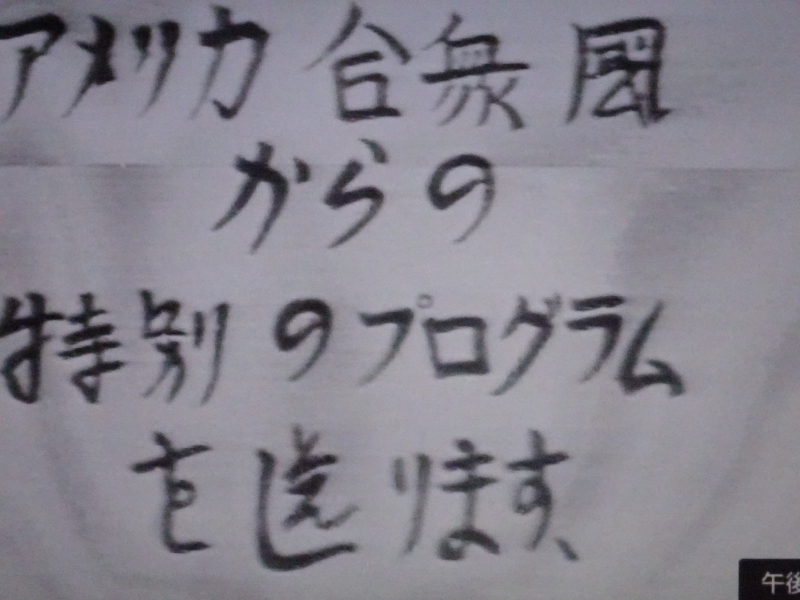 アメリカ合衆國
からの
特別のプログラム
を送ります、
午後